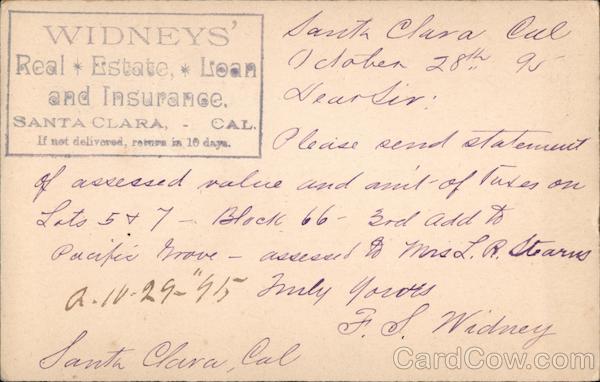 WIDNEYS'
Real * Estate, * Loan
and Insurance.
SANTA CLARA, - CAL.
If not delivered, return in 10 days.
Santa Clara Cal
October 28th 95
Dear Sir:
Please send statement
of assessed value and amt of Taxes on
Lots 5 & 7 - Block 66 - 3rd add to
Pacific Grove - assessed to Mrs L. R. Stearns
a. 10-29-"95 Truly Yours
F. S. Widney
Santa Clara, Cal
CardCow.com